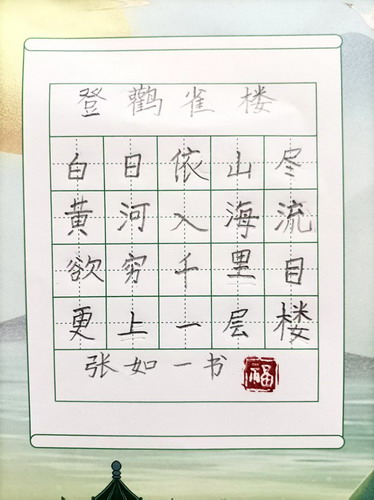 登鹳雀楼
白日依山尽
黄河入海流
欲穷千里目
更上一层楼
张如一书 福